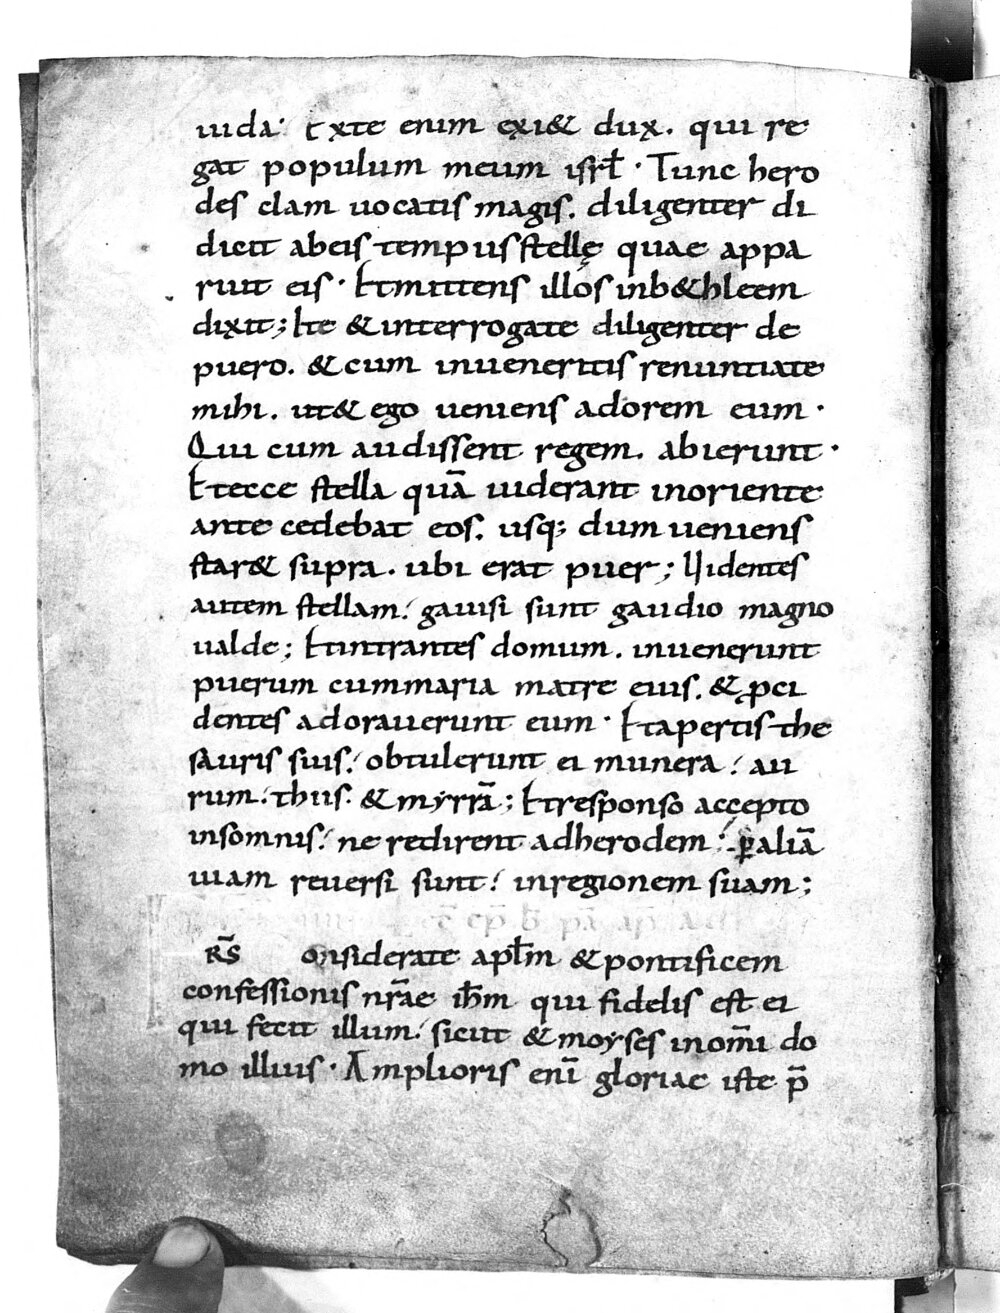 iuda· Exte enim exi& dux. qui re
gat populum meum isrł· Tunc hero
des clam uocatis magis. diligenter di
dicit abeis tempus stellę quae appa
ruit eis· Etmittens illos inb&hleem
dixit; Ite &interrogate diligenter de
puero. &cum inueneritis renuntiate
mihi. ut& ego ueniens adorem eum·
Qui cum audissent regem. abierunt·
Etecce stella quā uiderant inoriente
ante cedebat eos. usq; dum ueniens
star& supra. ubi erat puer; Uidentes
autem stellam. gauisi sunt gaudio magno
ualde; Etintrantes domum. inuenerunt
puerum cummaria matre eius. &pci
dentes adorauerunt eum· Etapertis the
sauris suis. obtulerunt ei munera. au
rum. thus. &myrrā; Etresponso accepto
insomnis. ne redirent adherodem. p̄aliā
uiam reuersi sunt. inregionem suam;
R̄S onsiderate apłm &pontificem
confessionis nr̄ae ih̄m qui fidelis est ei
qui fecit illum. sicut &moyses inom̄i do
mo illius· Amplioris eni̅ gloriae iste p̄